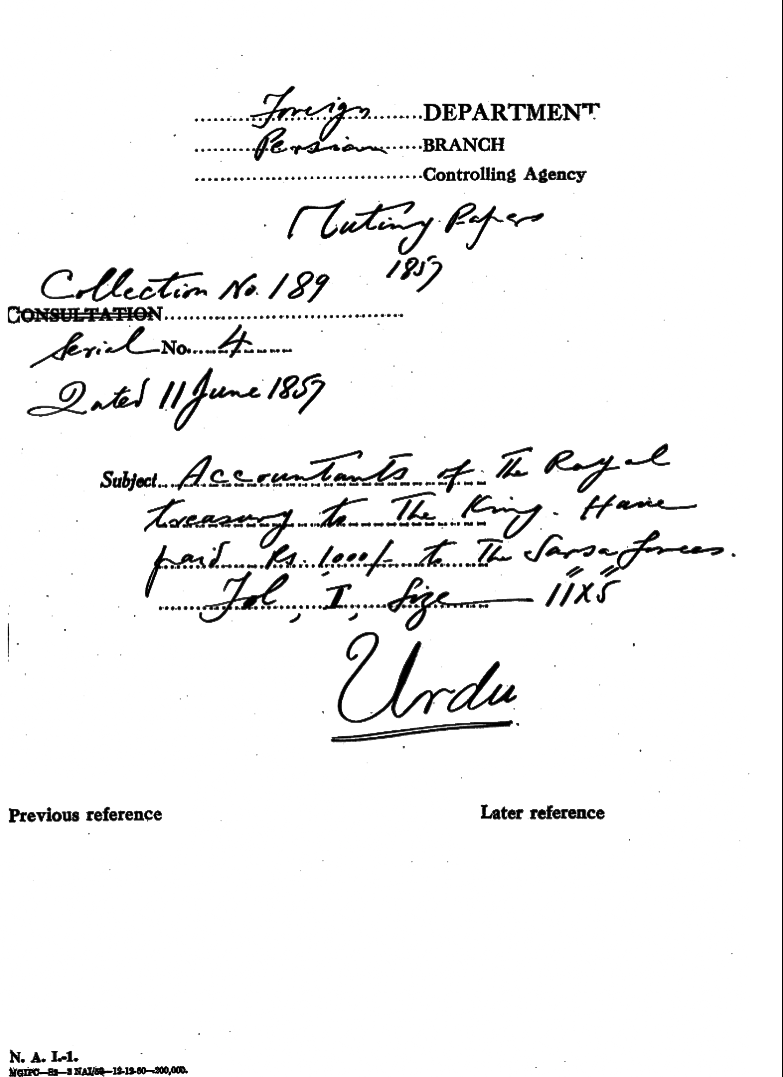 Foreign DEPARTMENT
Persian BRANCH
Controlling Agency
Mutiny Papers
1857
Collection No. 189
CONSULTATION
Serial No. 4
Dated 11 June 1857
Subject Accountants of The Royal
treasury to The King. Have
paid Rs. 1000/- to The Sarsa forces.
Fol, I, Size — 11"X5"
Urdu
Previous reference
Later reference
N. A. I.-1.